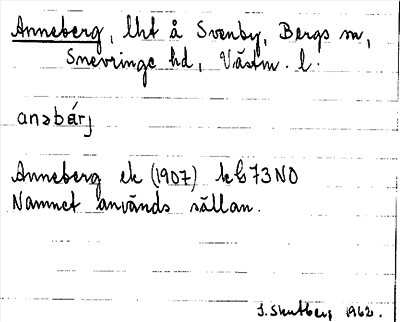 Anneberg, lht å Svenby, Bergs sn,
Snevringe hd, Västm. l.
anəbárj
Anneberg ek (1907) kb 73 NO
Namnet används sällan.
1962.